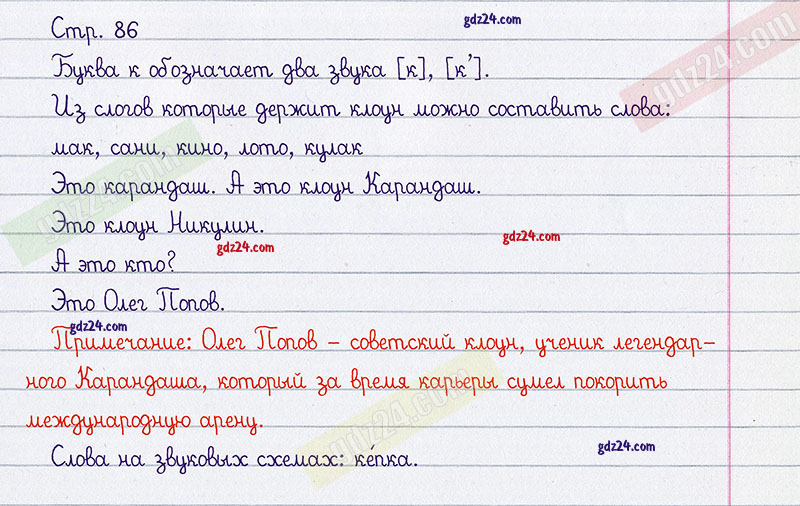 gdz24.com
Стр. 86
gdz24.com
Буква к обозначает два звука [к], [к’].
Из слогов которые держит клоун можно составить слова:
мак, сани, кино, лото, кулак
gdz24.com
Это карандаш. А это клоун Карандаш.
Это клоун Никулин.
gdz24.com
gdz24.com
А это кто?
Это Олег Попов.
gdz24.com
Примечание: Олег Попов – советский клоун, ученик легендар–
ного Карандаша, который за время карьеры сумел покорить
международную арену.
gdz24.com
Слова на звуковых схемах: ке́пка.
gdz24.com